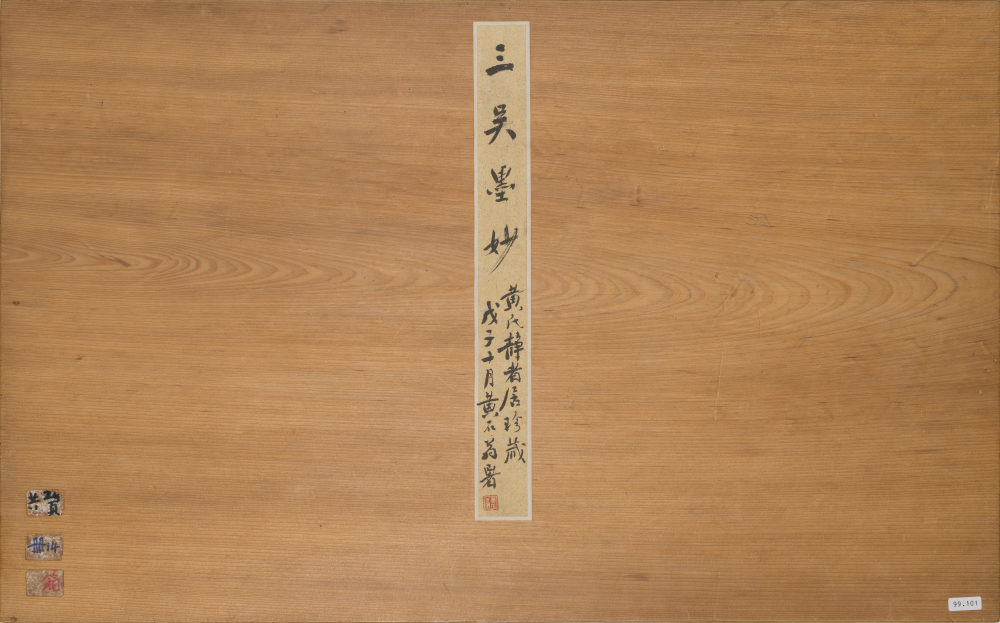 三吳墨妙
黃氏靜者居珍藏
戊子十月黃石翁署
共頁
冊14
99.101